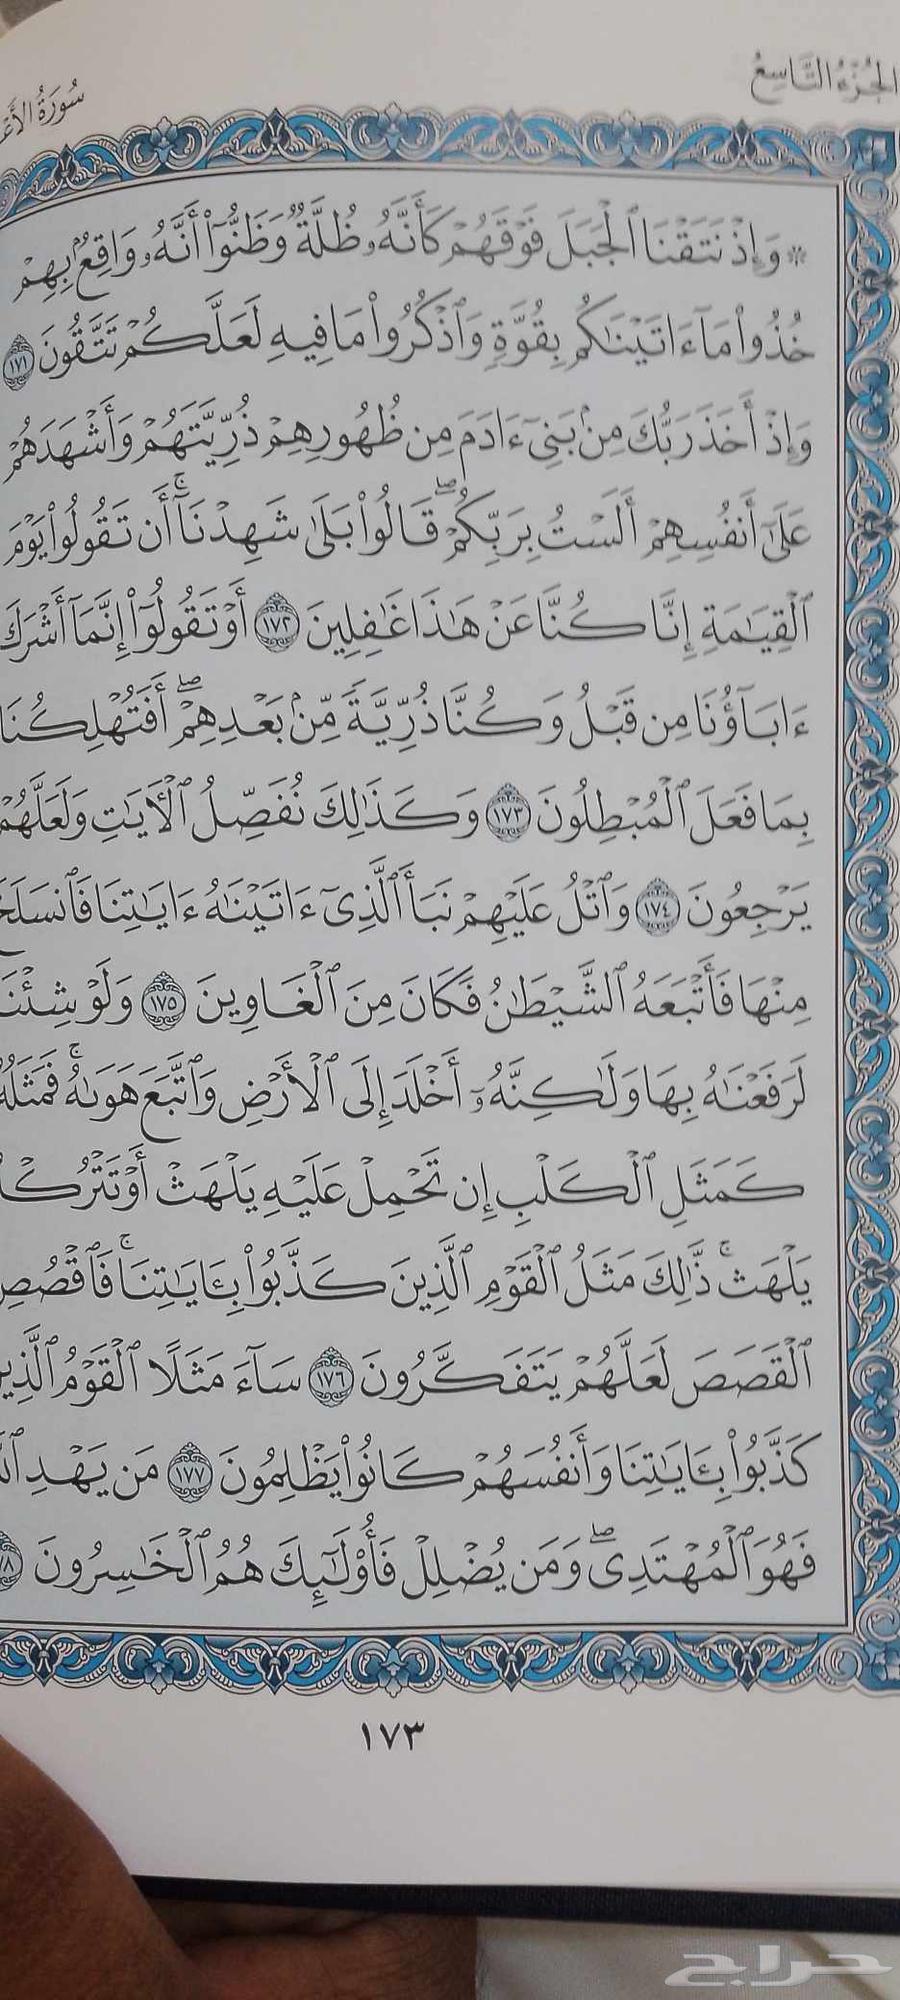 الجُزْءُ التَّاسِعُ
سُورَةُ
۞ وَإِذْ نَتَقْنَا ٱلْجَبَلَ فَوْقَهُمْ كَأَنَّهُۥ ظُلَّةٌ وَظَنُّوٓا۟ أَنَّهُۥ وَاقِعٌۢ بِهِمْ
خُذُوا۟ مَآ ءَاتَيْنَٰكُم بِقُوَّةٍ وَٱذْكُرُوا۟ مَا فِيهِ لَعَلَّكُمْ تَتَّقُونَ ١٧١
وَإِذْ أَخَذَ رَبُّكَ مِنۢ بَنِىٓ ءَادَمَ مِن ظُهُورِهِمْ ذُرِّيَّتَهُمْ وَأَشْهَدَهُمْ
عَلَىٰٓ أَنفُسِهِمْ أَلَسْتُ بِرَبِّكُمْ ۖ قَالُوا۟ بَلَىٰ شَهِدْنَآ ۚ أَن تَقُولُوا۟ يَوْمَ
ٱلْقِيَٰمَةِ إِنَّا كُنَّا عَنْ هَٰذَا غَٰفِلِينَ ١٧٢ أَوْ تَقُولُوٓا۟ إِنَّمَآ أَشْرَكَ
ءَابَآؤُنَا مِن قَبْلُ وَكُنَّا ذُرِّيَّةً مِّنۢ بَعْدِهِمْ ۖ أَفَتُهْلِكُنَا
بِمَا فَعَلَ ٱلْمُبْطِلُونَ ١٧٣ وَكَذَٰلِكَ نُفَصِّلُ ٱلْـَٔايَٰتِ وَلَعَلَّهُمْ
يَرْجِعُونَ ١٧٤ وَٱتْلُ عَلَيْهِمْ نَبَأَ ٱلَّذِىٓ ءَاتَيْنَٰهُ ءَايَٰتِنَا فَٱنسَلَخَ
مِنْهَا فَأَتْبَعَهُ ٱلشَّيْطَٰنُ فَكَانَ مِنَ ٱلْغَاوِينَ ١٧٥ وَلَوْ شِئْنَا
لَرَفَعْنَٰهُ بِهَا وَلَٰكِنَّهُۥٓ أَخْلَدَ إِلَى ٱلْأَرْضِ وَٱتَّبَعَ هَوَىٰهُ ۚ فَمَثَلُهُ
كَمَثَلِ ٱلْكَلْبِ إِن تَحْمِلْ عَلَيْهِ يَلْهَثْ أَوْ تَتْرُكْهُ
يَلْهَث ۚ ذَّٰلِكَ مَثَلُ ٱلْقَوْمِ ٱلَّذِينَ كَذَّبُوا۟ بِـَٔايَٰتِنَا ۚ فَٱقْصُصِ
ٱلْقَصَصَ لَعَلَّهُمْ يَتَفَكَّرُونَ ١٧٦ سَآءَ مَثَلًا ٱلْقَوْمُ ٱلَّذِينَ
كَذَّبُوا۟ بِـَٔايَٰتِنَا وَأَنفُسَهُمْ كَانُوا۟ يَظْلِمُونَ ١٧٧ مَن يَهْدِ ٱللَّهُ
فَهُوَ ٱلْمُهْتَدِى ۖ وَمَن يُضْلِلْ فَأُو۟لَٰٓئِكَ هُمُ ٱلْخَٰسِرُونَ ١٧٨
١٧٣
حراج